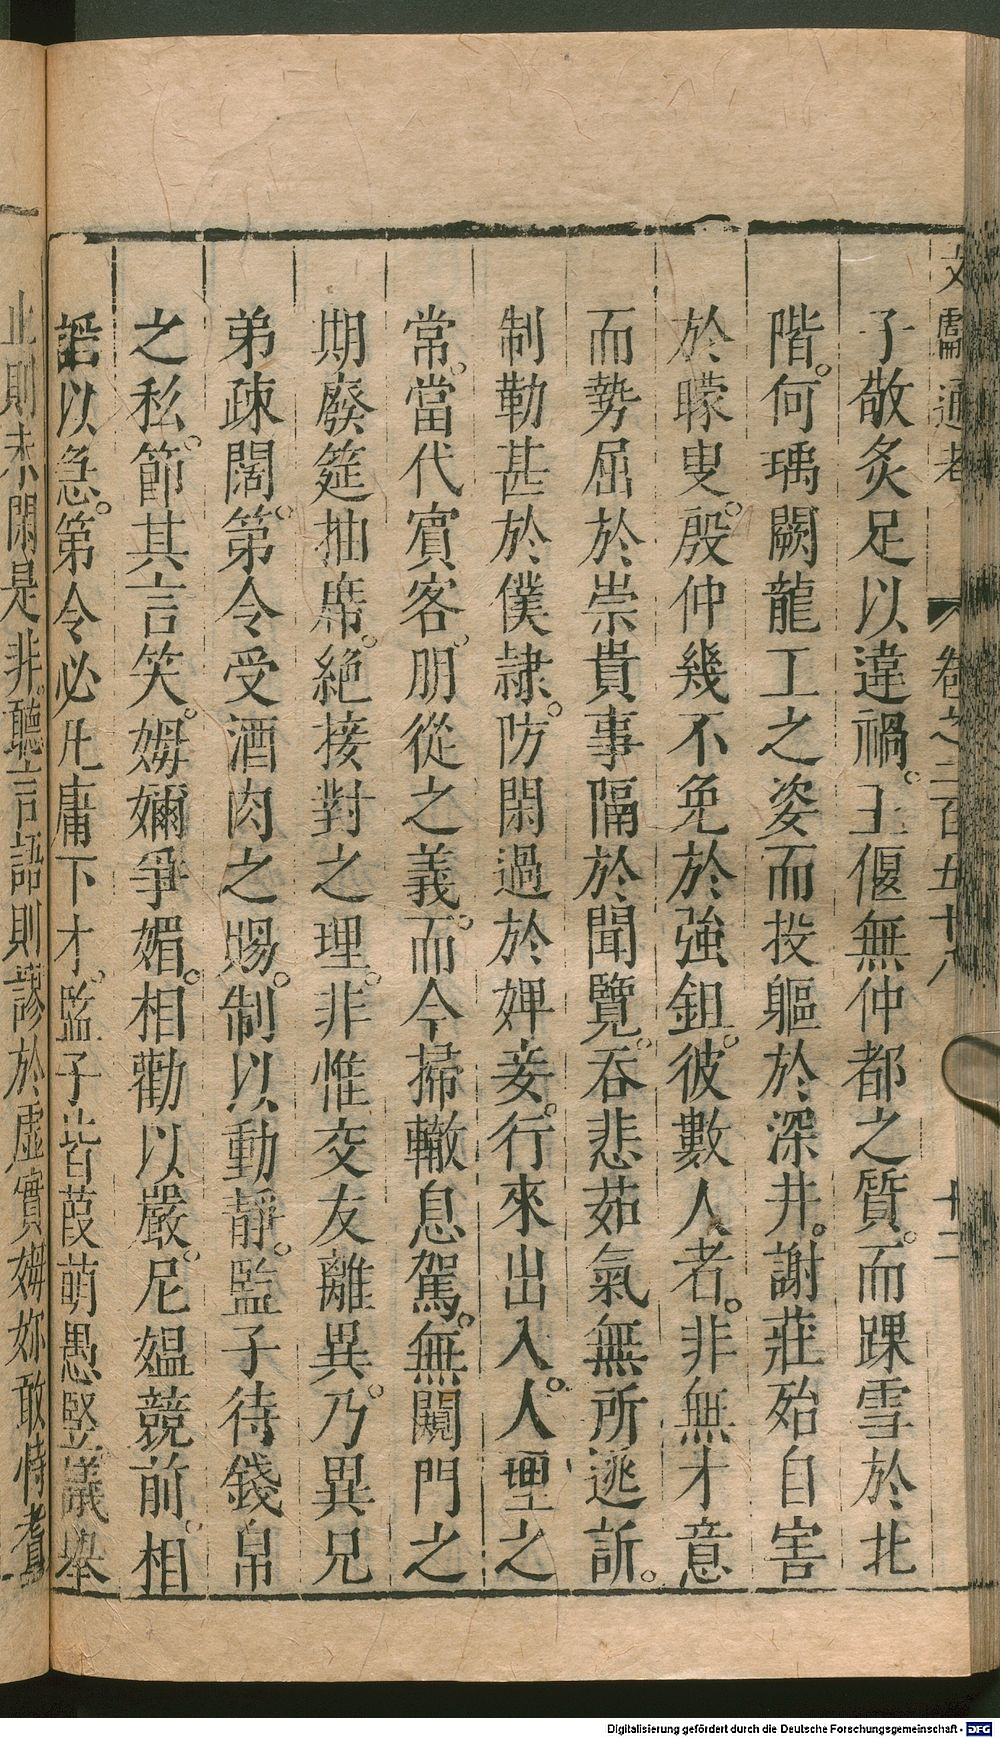 文獻通考 卷之二百五十八 十二
子敬炙足以違禍。王偃無仲都之質。而踝雪於北
階。何瑀闕龍工之姿而投軀於深井。謝莊殆自害
於矇叟。殷仲幾不免於強鉏。彼數人者。非無才意
而勢屈於崇貴事隔於聞覽。吞悲茹氣無所逃訴。
制勒甚於僕隷。防閑過於婢妾。行來出入。人理之
常。當代賓客。朋從之義。而今掃轍息駕。無闚門之
期廢筵抽席。絶接對之理。非惟交友離異。乃異兄
弟疎闊。第令受酒肉之賜。制以動靜。監子待錢帛
之私。節其言笑。姆嬭爭媚。相勸以嚴。尼媼競前。相
謟以急。第令必凡庸下才。監子皆葭萌愚豎議舉
止則未閑是非。聽言語則謬於虛實姆妳敢恃耆
Digitalisierung gefördert durch die Deutsche Forschungsgemeinschaft - DFG